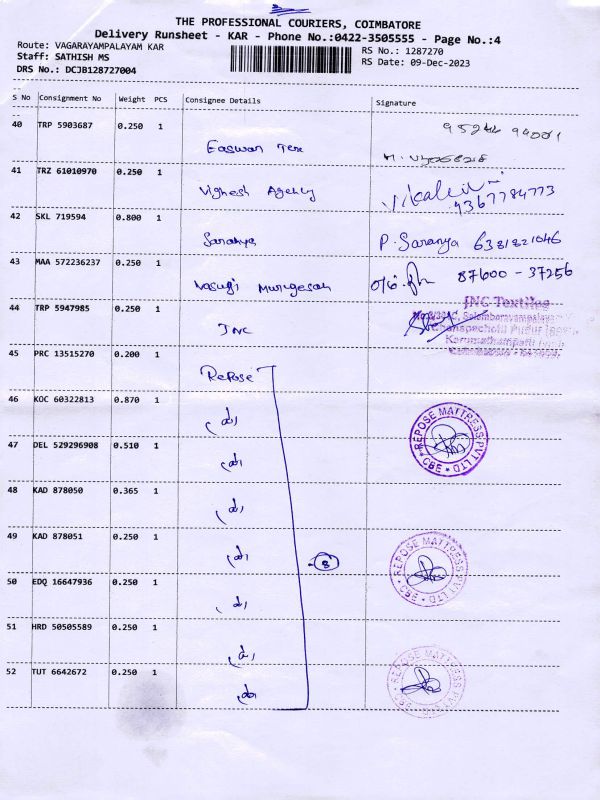 THE PROFESSIONAL COURIERS, COIMBATORE
Delivery Runsheet - KAR - Phone No.:0422-3505555 - Page No.:4
Route: VAGARAYAMPALAYAM KAR
Staff: SATHISH MS
DRS No.: DCJB128727004
RS No.: 1287270
RS Date: 09-Dec-2023
S No Consignment No Weight PCS Consignee Details Signature
40 TRP 5903687 0.250 1
Easwari Tex
41 TRZ 61010970 0.250 1
Vighesh Agency
9367784773
42 SKL 719594 0.800 1
Saranya P. Saranya 6381821046
43 MAA 572236237 0.250 1
Vasugi Murugesan 87600 - 37256
44 TRP 5947985 0.250 1
JNC
JNC Textiles
45 PRC 13515270 0.200 1
Repose
46 KOC 60322813 0.870 1
REPOSE MATTRESS PVT LTD * CBE *
47 DEL 529296908 0.510 1
48 KAD 878050 0.365 1
49 KAD 878051 0.250 1
8
REPOSE MATTRESS PVT LTD * CBE *
50 EDQ 16647936 0.250 1
51 HRD 50505589 0.250 1
52 TUT 6642672 0.250 1
REPOSE MATTRESS PVT LTD * CBE *